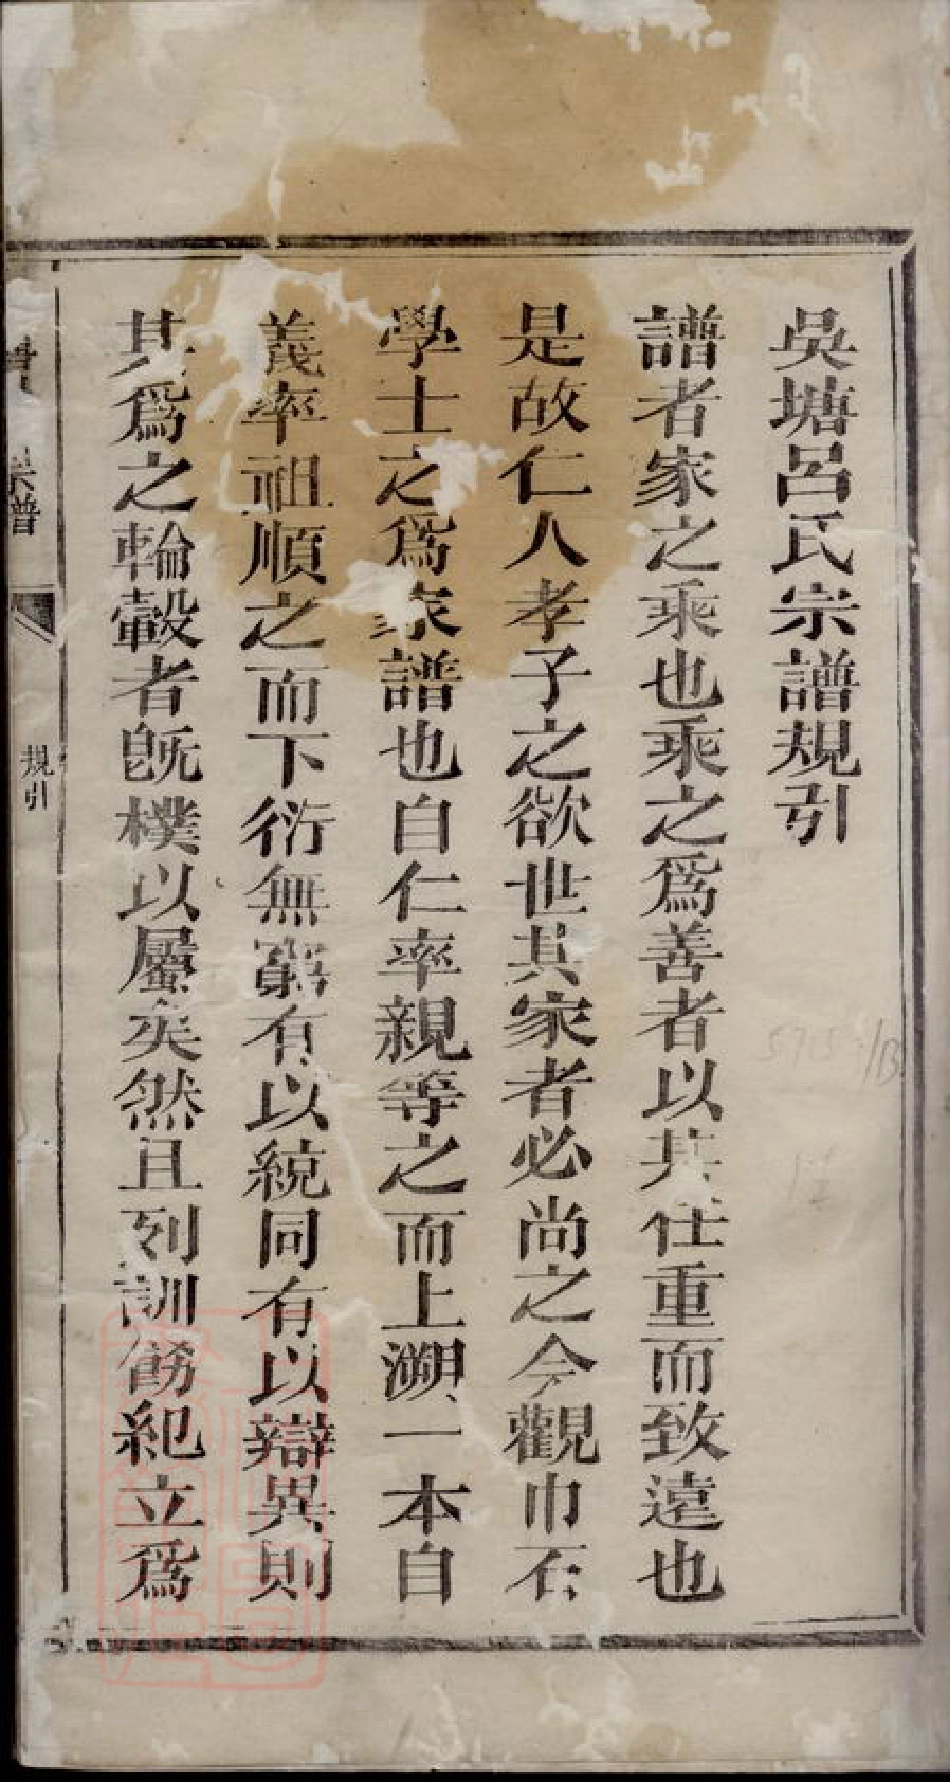 吳塘呂氏宗譜規引
譜者家之乘也乘之爲善者以其任重而致遠也
是故仁人孝子之欲世其家者必尚之今觀巾石
學士之爲家譜也自仁率親等之而上溯一本自
義率祖順之而下衍無窮有以統同有以辯異則
其爲之輪轂者旣樸以屬矣然且列訓飭紀立爲
宗譜
規引